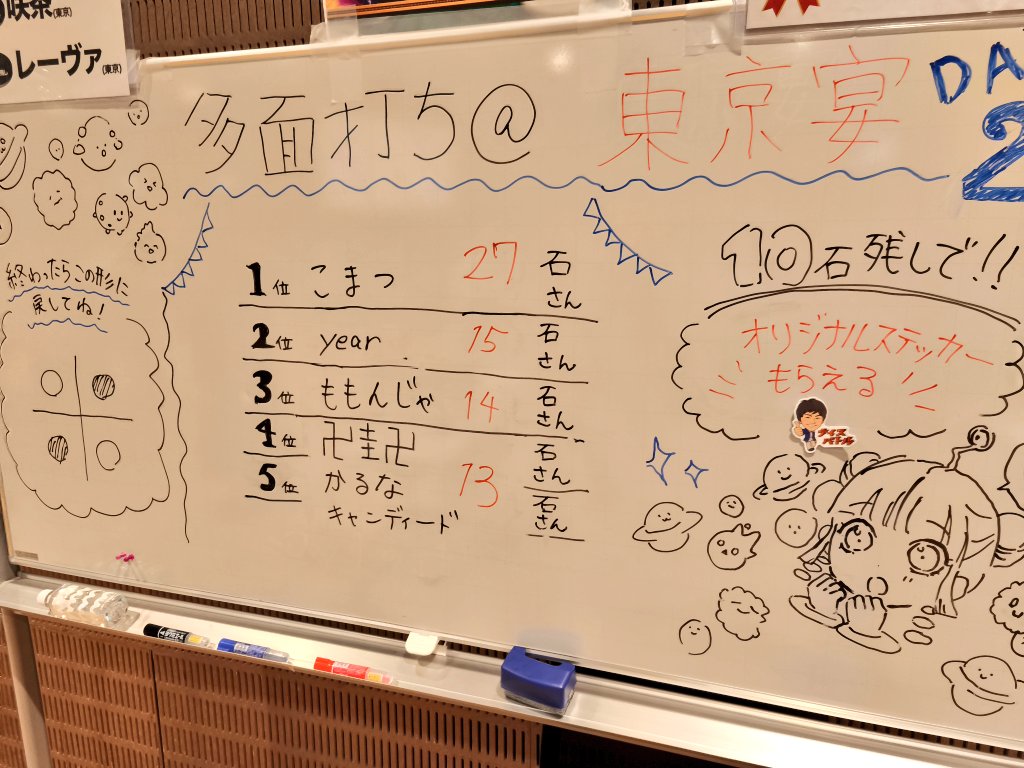 喫茶(東京)
レーヴァ(東京)
多面打ち@ 東京宴 DA
2
終わったらこの形に
戻してね!
1位 こまつ 27 石さん
2位 year 15 石さん
3位 ももんじゃ 14 石さん
4位 卍圭卍 石さん
5位 かるな 13 石さん
キャンディード
10石残しで!!
オリジナルステッカー
もらえる
クイズ
バトル